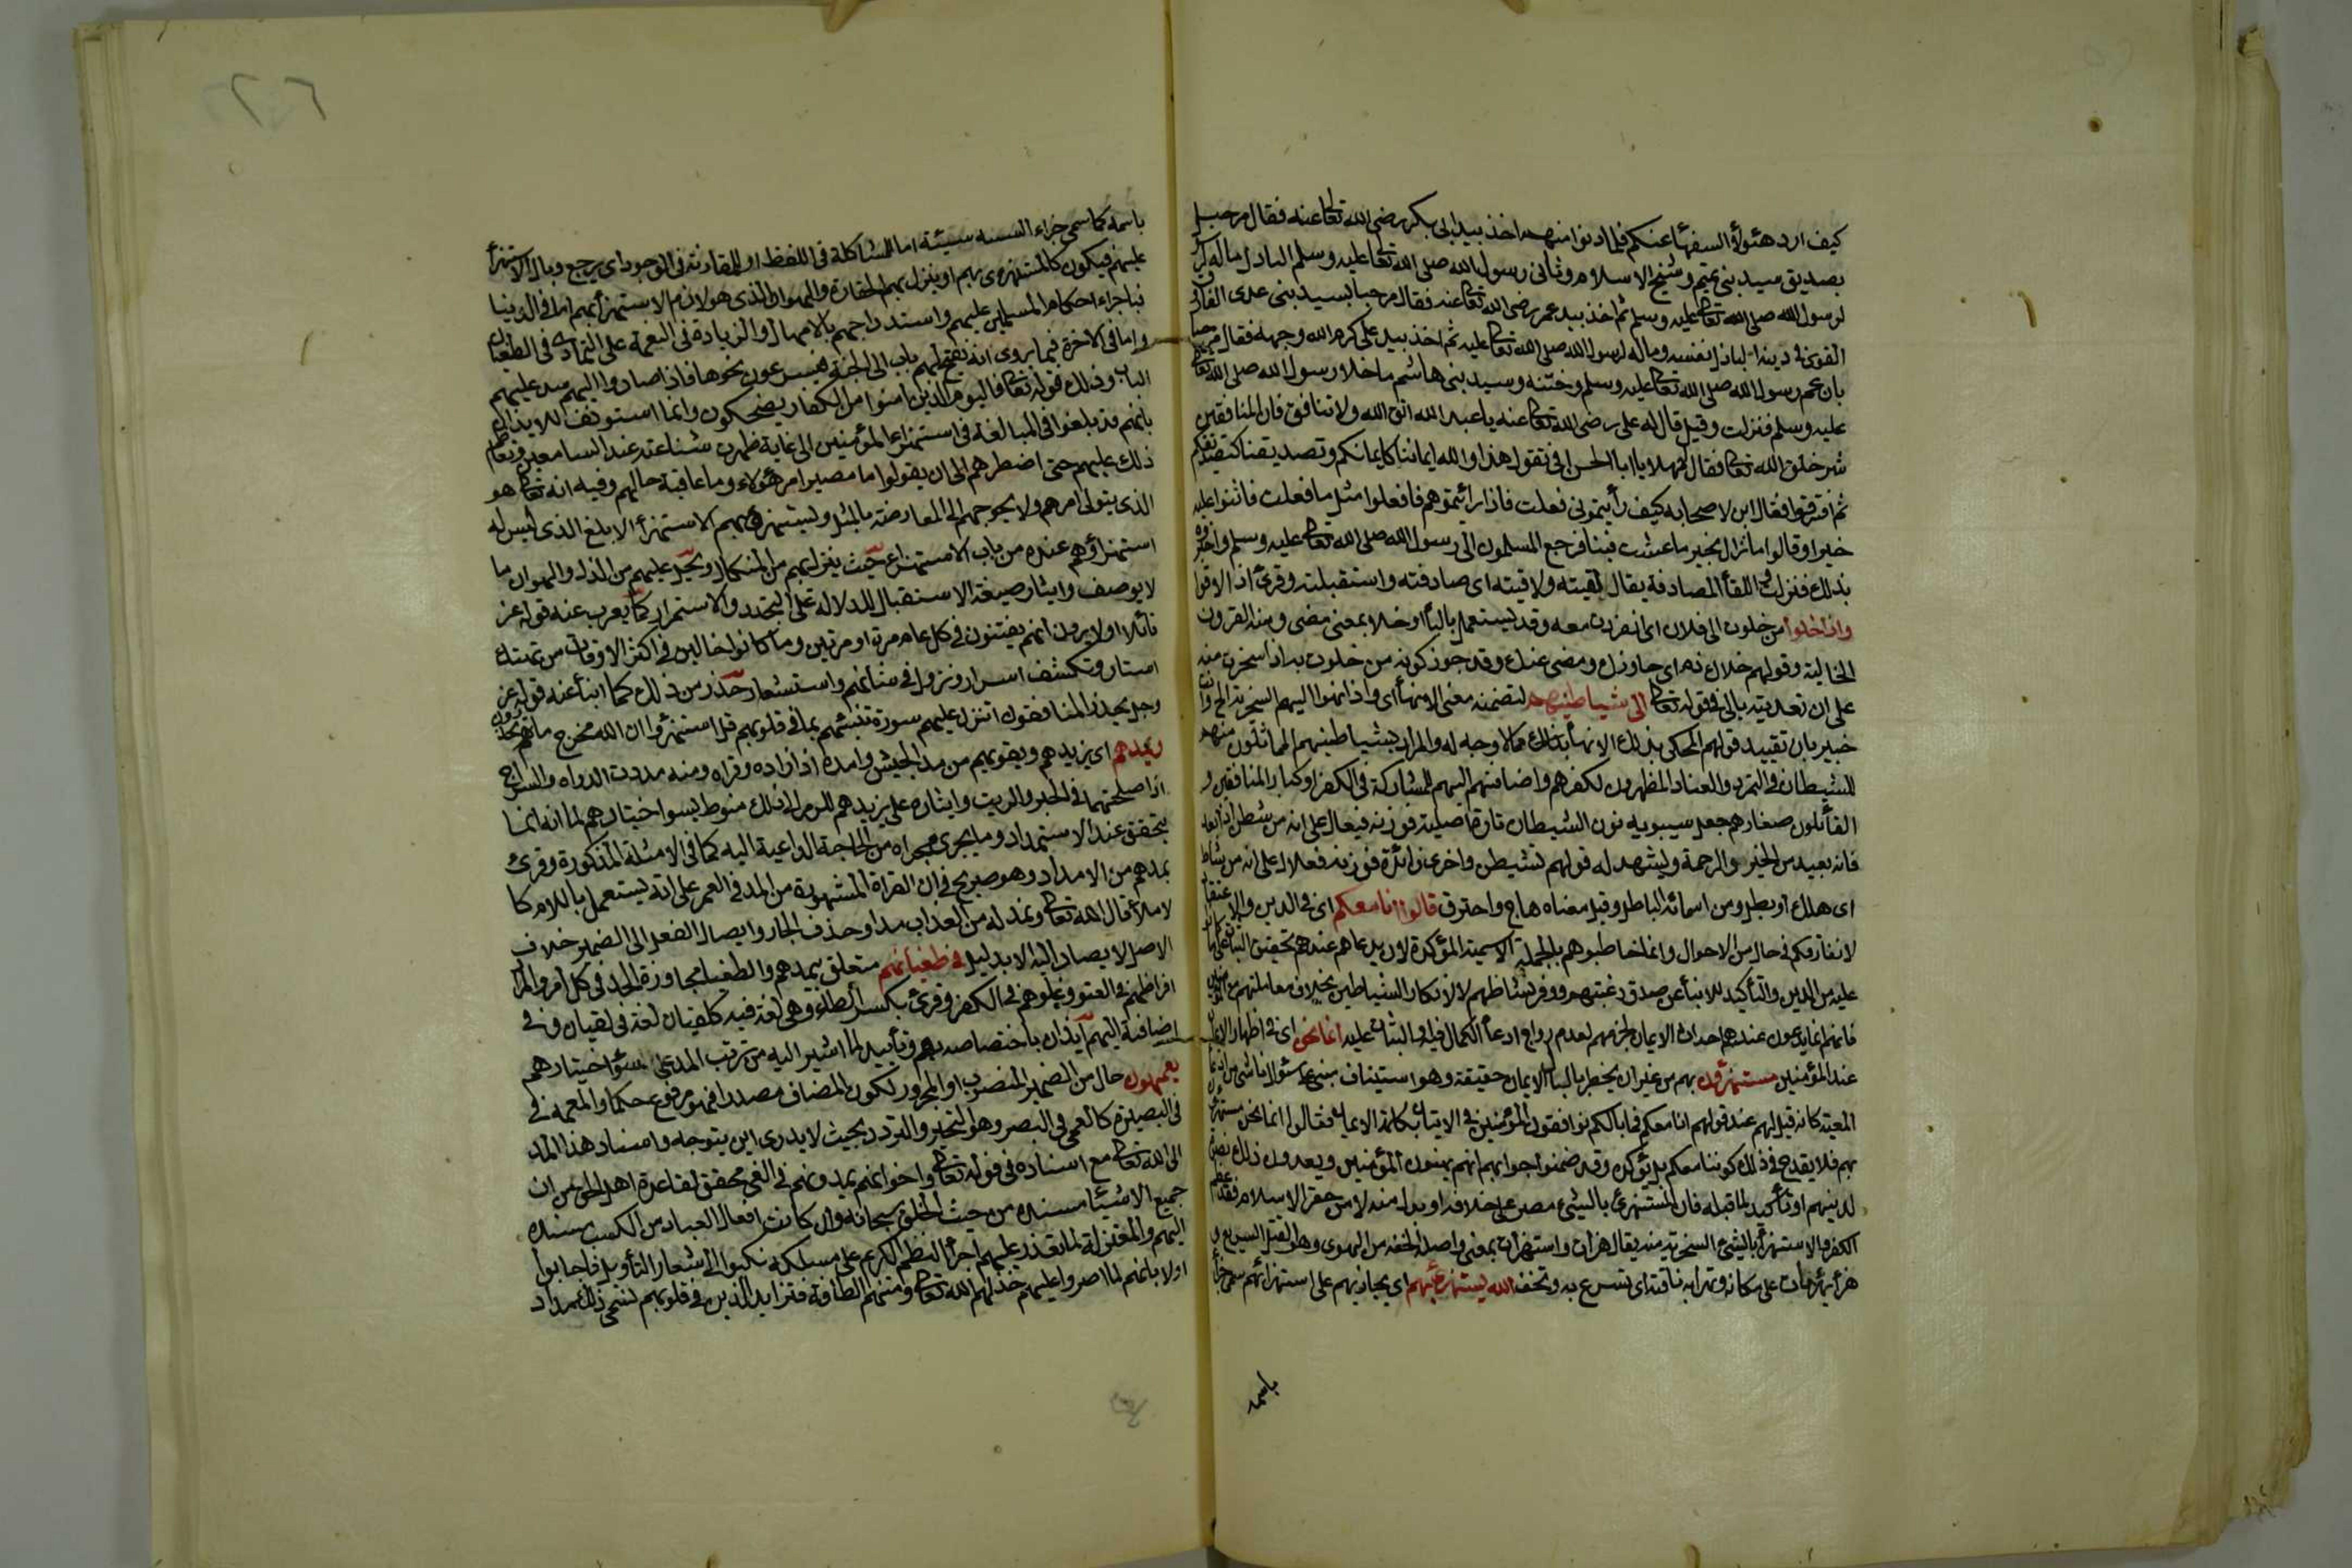 كيف ارد هئولاء السفهاء عنكم فلما دنوا منهم اخذ بيد ابى بكر رضى الله تعالى عنه فقال مرحبا
بصديق سيد بنى تميم وشيخ الاسلام وثانى رسول الله صلى الله تعالى عليه وسلم الباذل ماله
لرسول الله صلى الله تعالى عليه وسلم ثم اخذ بيد عمر رضى الله تعالى عنه فقال مرحبا بسيد بنى عدى الفاروق
القوى فى دينه الباذل نفسه وماله لرسول الله صلى الله تعالى عليه ثم اخذ بيد على كرم الله وجهه فقال مرحبا
بابن عم رسول الله صلى الله تعالى عليه وسلم وختنه وسيد بنى هاشم ما خلا رسول الله صلى الله تعالى
عليه وسلم فنزلت وقيل قال له على رضى الله تعالى عنه يا عبد الله اتق الله ولا تنافق فان المنافقين
شر خلق الله تعالى فقال له مهلا يا ابا الحسن افى تقول هذا والله ايماننا كايمانكم وتصديقنا كتصديقكم
ثم افترقوا فقال ابن لاصحابه كيف رأيتمونى فعلت فاذا رأيتموهم فافعلوا مثل ما فعلت فاثنوا عليه
خيرا وقالوا ما نزال بخير ما عشت فينا فرجع المسلمون الى رسول الله صلى الله تعالى عليه وسلم واخبروه
بذلك فنزلت واللقاء المصادفة يقال لقيته ولاقيته اى صادفته واستقبلته وقرئ اذا لاقوا
واذا خلوا من خلوت الى فلان اى انفردت معه وقد يستعمل بالباء او خلا بمعنى مضى ومنه القرون
الخالية وقولهم خلاك ذم اى جاوزك ومضى عنك وقد جوز كونه من خلوت به اذا سخرت منه
على ان تعديته بالى فى قوله تعالى الى شياطينهم لتضمنه معنى الانهاء اى واذا انهوا اليهم السخرية الخ وانت
خبير بان تقييد قولهم المحكى بذلك الانهاء مما لا وجه له والمراد بشياطينهم المماثلون منهم
للشيطان فى التمرد والعناد المظهرون لكفرهم واضافتهم اليهم للمشاركة فى الكفر او كبار المنافقين و
القائلون صغارهم جعل سيبويه نون الشيطان تارة اصلية فوزنه فيعال على انه من شطن اذا بعد
فانه بعيد من الخير والرحمة ويشهد له قولهم تشيطن واخرى زائدة فوزنه فعلان على انه من شاط
اى هلك او بطل ومن اسمائه الباطل وقيل معناه هاج واحترق قالوا انا معكم اى فى الدين والاعتقاد
لا نفارقكم فى حال من الاحوال وانما خاطبوهم بالجملة الاسمية المؤكدة لان مدعاهم عندهم تحقيق الثبات على ما
عليه من الدين والتأكيد للانباء عن صدق رغبتهم ووفور نشاطهم لا لانكار الشياطين بخلاف معاملتهم مع المؤمنين
فانهم انما يدعون عندهم احداث الايمان لجزمهم لعدم رواج ادعاء الكمال فيه او الثبات عليه انما نحن اى فى اظهار الايمان
عند المؤمنين مستهزؤن بهم من غير ان يخطر بالنا الايمان حقيقة وهو استيناف مبنى على سئوال ناشئ من ادعاء
المعية كانه قيل لهم عند قولهم انا معكم فما بالكم توافقون المؤمنين فى الاتيان بكلمة الايمان فقالوا انما نحن مستهزؤن
بهم فلا يقدح فى ذلك كوننا معكم بل يؤكده وقد ضمنوا جوابهم انهم يهينون المؤمنين ويعدون ذلك نصرة
لدينهم او تأكيد لما قبله فان المستهزئ بالشئ مصر على خلافه او بدل منه لان من حقر الاسلام فقد عظم
الكفر والاستهزاء بالشئ السخرية منه يقال هزأت واستهزأت بمعنى واصله الخفة من الهزء وهو القتل السريع و
هزأ يهزأ مات على مكانه وتهزأ به ناقته اى تسرع به وتخف الله يستهزئ بهم اى يجازيهم على استهزائهم سمى جزاؤه
باسمه
٢٦
باسمه كما سمى جزاء السيئة سيئة اما للمشاكلة فى اللفظ او للمقارنة فى الوجود اى يرجع وبال الاستهزاء
عليهم فيكون كالمستهزئ بهم او ينزل بهم الحقارة والهوان الذى هو لازم الاستهزاء بهم اما فى الدنيا
فباجراء احكام المسلمين عليهم واستدراجهم بالامهال والزيادة فى النعمة على التمادى فى الطغيان
واما فى الاخرة فيما يروى انه يفتح لهم باب الى الجنة فيسرعون نحوها فاذا صاروا اليهم سد عليهم
الباب وذلك قوله تعالى فاليوم الذين امنوا من الكفار يضحكون وانما استونف للايذان
بانهم قد بلغوا فى المبالغة فى استهزاء المؤمنين الى غاية ظهرت شناعته عند السامعين وتعاظم
ذلك عليهم حتى اضطرهم الى ان يقولوا ما مصير امر هئولاء وما عاقبة حالهم وفيه انه تعالى هو
الذى يتولى امرهم ولا يحوجهم الى المعارضة بالمثل ويستهزئ بهم الاستهزاء الابلغ الذى ليس له
استهزاؤهم عنده من باب الاستهزاء حيث ينزل بهم من النكال ويحل عليهم من الذل والهوان ما
لا يوصف وايثار صيغة الاستقبال للدلالة على التجدد والاستمرار كما يعرب عنه قوله عز
قائلا اولا يرون انهم يفتنون فى كل عام مرة او مرتين وما كانوا خالين فى اكثر الاوقات من تهتك
استار وتكشف اسرار ونزول فى شأنهم واستشعار حذر من ذلك كما انبأ عنه قوله عز
وجل يحذر المنافقون ان تنزل عليهم سورة تنبئهم بما فى قلوبهم قل استهزؤا ان الله مخرج ما تحذرون
ويمدهم اى يزيدهم ويقويهم من مد الجيش وامده اذا زاده وقواه ومنه مددت الدواة والسراج
اذا اصلحتهما فى الحبر والزيت وايثاره على يزيدهم للرمز الى ذلك منوط بسوء اختيارهم لما انه انما
يتحقق عند الاستمداد وما يجرى مجراه من الحاجة الداعية اليه كما فى الامثلة المذكورة وقرئ
يمدهم من الامداد وهو صريح فى ان القراءة المشهورة من المد فى العمر على انه يستعمل باللام كا
لاملاء قال الله تعالى ونمد له من العذاب مدا وحذف الجار وايصال الفعل الى الضمير خلاف
الاصل لا يصار اليه الا بدليل فى طغيانهم متعلق بيمدهم والطغيان مجاوزة الحد فى كل امر والمراد
افراطهم فى العتو وغلوهم فى الكفر وقرئ بكسر الطاء وهى لغة فيه كلقيان لغة فى لقيان وفى
اضافته اليهم ايذان باختصاصه بهم وتأييد لما اشير اليه من ترتب المد على سوء اختيارهم
يعمهون حال من الضمير المنصوب او المجرور لكون المضاف مصدرا فهو مرفوع حكما والعمه فى
فى البصيرة كالعمى فى البصر وهو التحير والتردد بحيث لا يدرى اين يتوجه واسناد هذا المد
الى الله تعالى مع اسناده فى قوله تعالى واخوانهم يمدونهم فى الغى محقق لقاعدة اهل الحق من ان
جميع الاشياء مستندة من حيث الخلق اليه سبحانه وان كانت افعال العباد من حيث الكسب مستندة
اليهم والمعتزلة لما تعذر عليهم اجراء النظم الكريم على مسلكه نكبوا الى شعاب التأويل فاجابوا
اولا بانهم لما اصروا عليهم خذلهم الله تعالى ومنعهم الطافه فتزايد الرين فى قلوبهم فسمى ذلك مددا